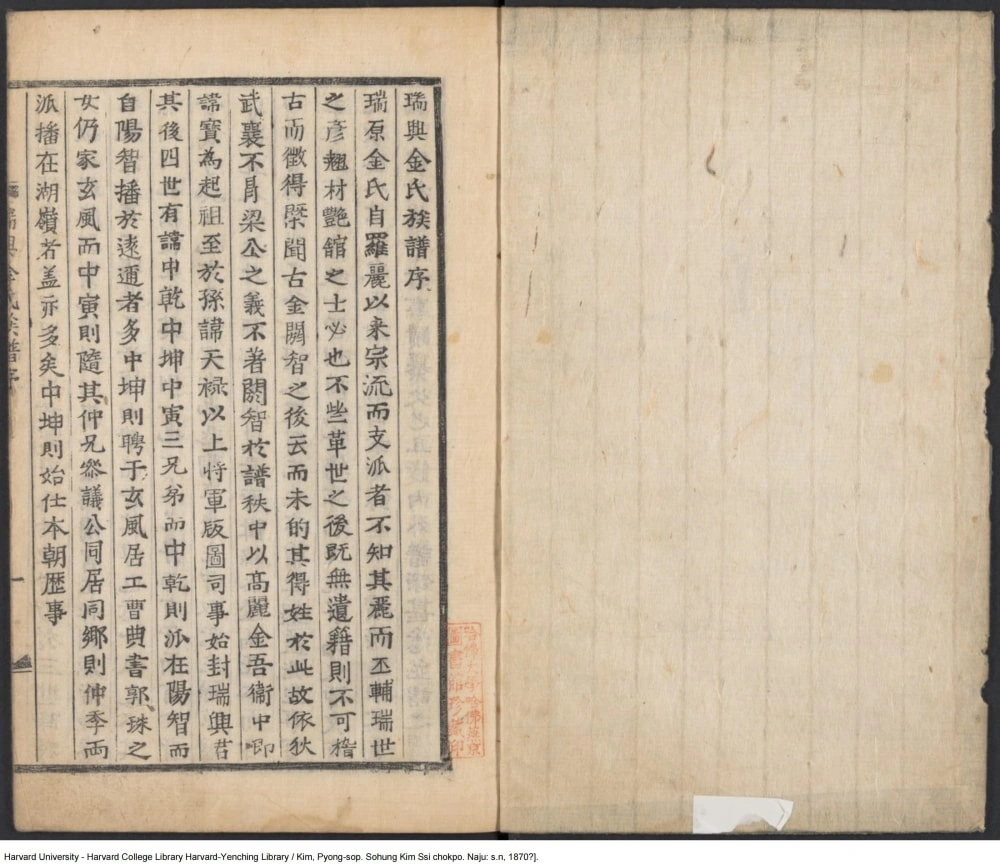 瑞興金氏族譜序
瑞原金氏自羅麗以来宗流而支派者不知其麗而丕輔瑞世
之彦翹材艷舘之士必也不些革世之後旣無遺籍則不可稽
古而徵得槩聞古金閼智之後云而未的其得姓於此故依狄
武襄不肎梁公之義不著閼智於譜秩中以高麗金吾衛中郞
諱寶為起祖至於孫諱天禄以上將軍版圖司事始封瑞興君
其後四世有諱中乾中坤中寅三兄弟而中乾則派在陽智而
自陽智播於遠邇者多中坤則聘于玄風居工曺典書郭珠之
女仍家玄風而中寅則隨其仲兄叅議公同居同鄉則仲季兩
派播在湖嶺者盖亦多矣中坤則始仕本朝歷事
瑞興金氏族譜序
一
Harvard University - Harvard College Library Harvard-Yenching Library / Kim, Pyong-sop. Sohung Kim Ssi chokpo. Naju: s.n, 1870?].